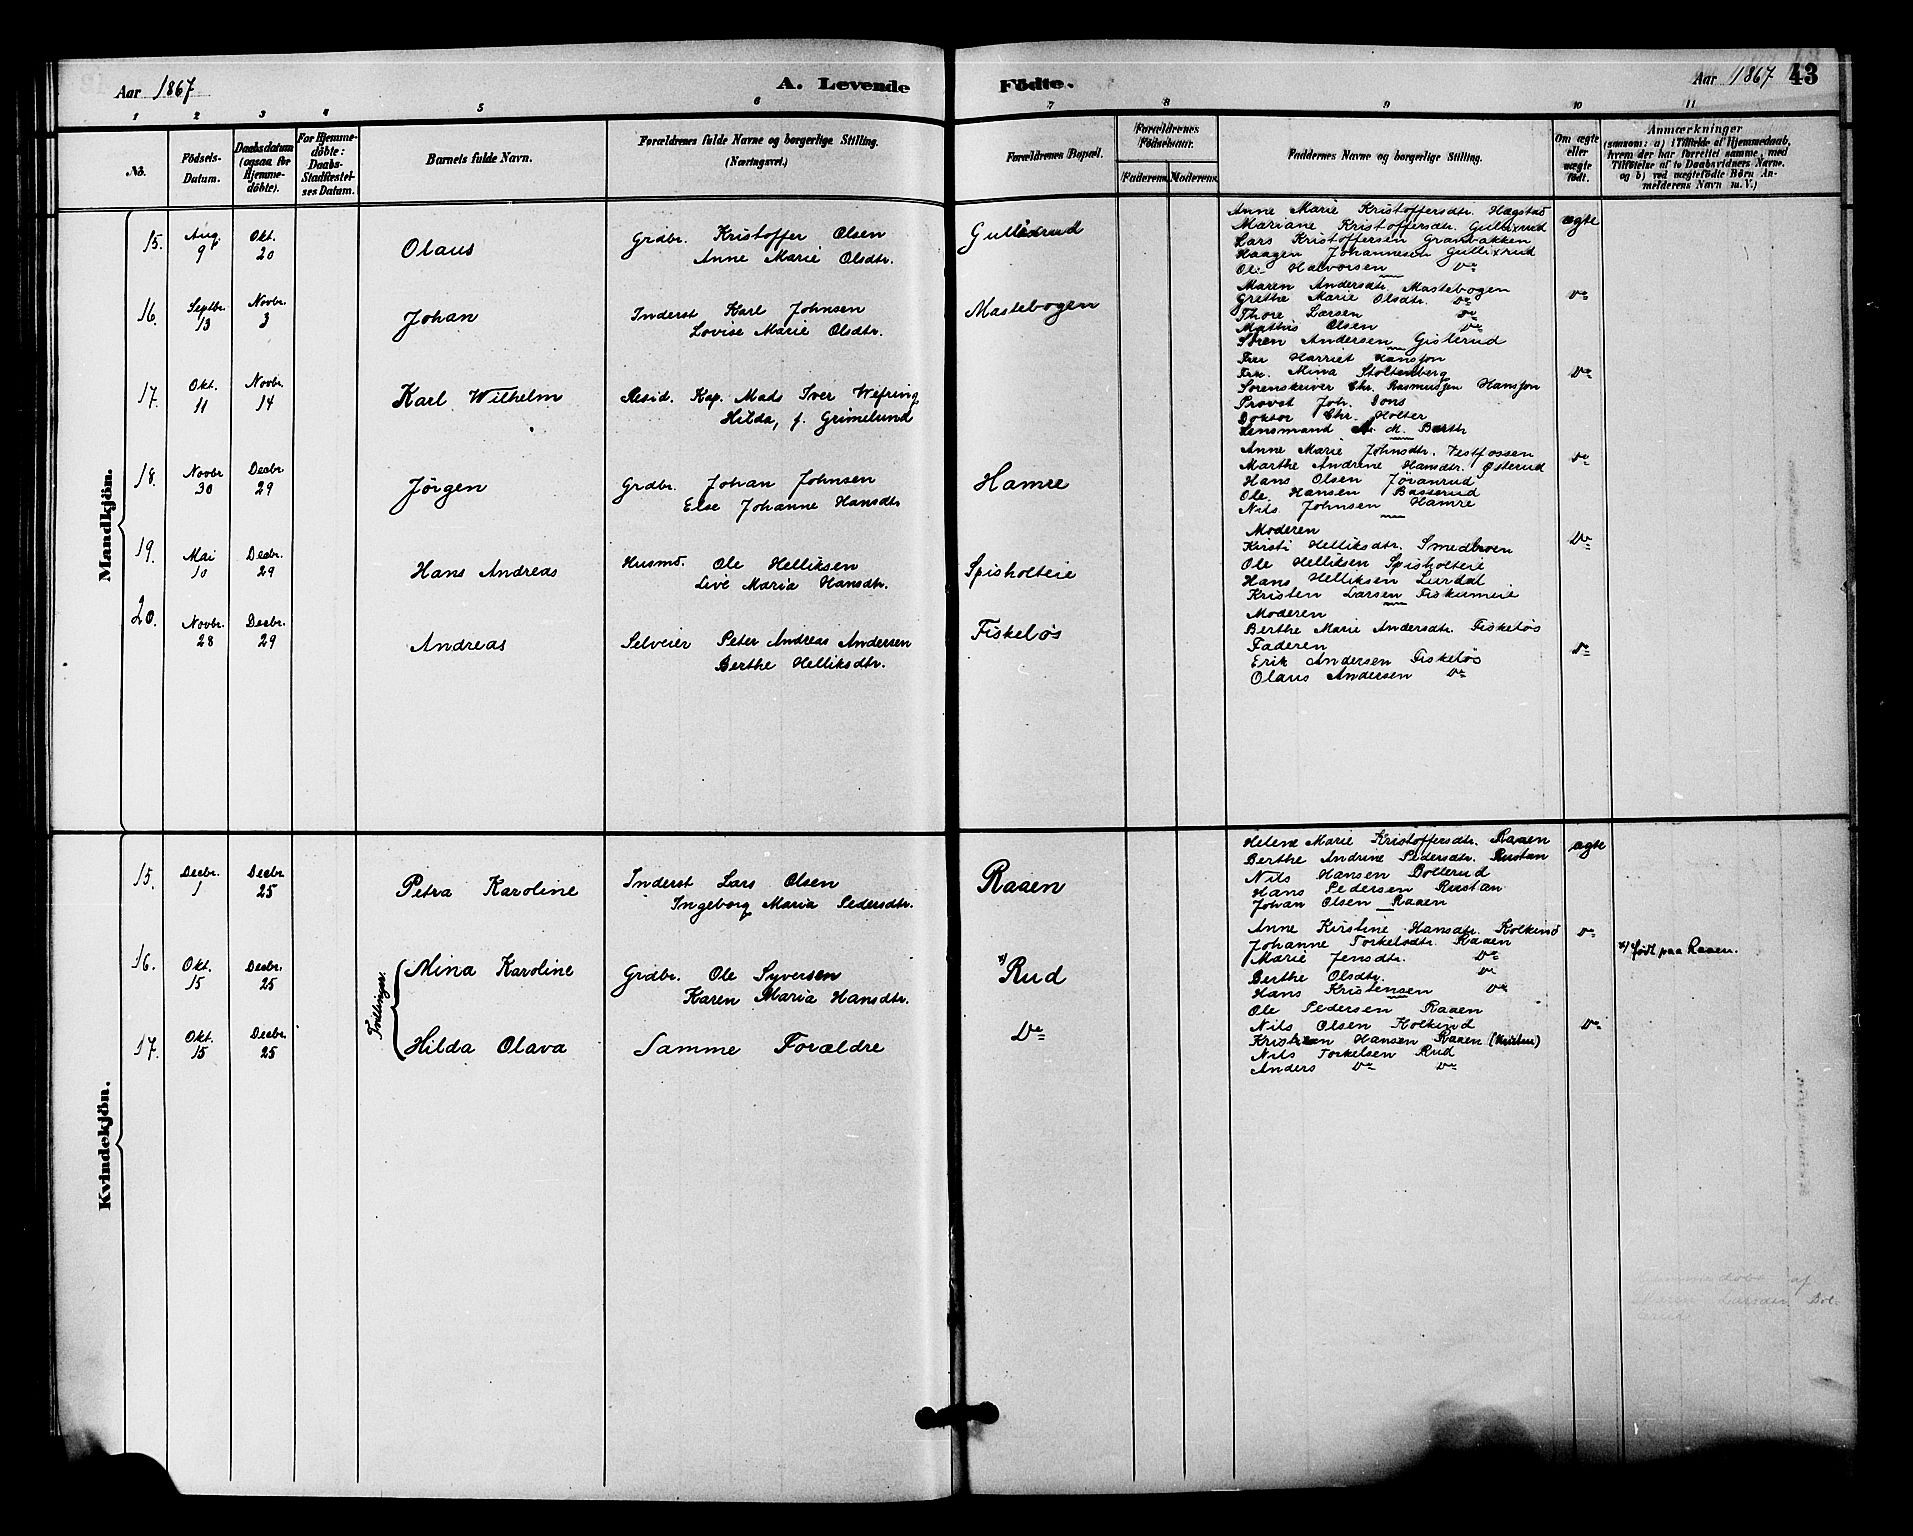 Aar 1867
A. Levende Födte.
Aar 1867
43
1 2 3 4 5 6 7 8 9 10 11
No. Födsels-Datum. Daabsdatum (ogsaa for Hjemme-döbte). For Hjemme-döbte: Daabs-Stadfæstel-ses Datum. Barnets fulde Navn. Forældrenes fulde Navne og borgerlige Stilling. (Næringsvei.) Forældrenes Bopæl. Forældrenes Födselsaar. Faderens. Moderens. Faddernes Navne og borgerlige Stilling. Om ægte eller uægte födt. Anmærkninger (saasom: a) i Tilfælde af Hjemmedaab, hvem der har forrettet samme, med Tilföielse af to Daabsvidners Navne, og b) ved uægtefödte Börn An-melderens Navn m. V.)
Mandkjön.
15. Aug. 9 Okt. 20 Olaus Grdbr. Kristoffer Olsen
Anne Marie Olsdtr.
Gullixrud
Anne Marie Kristoffersdtr. Hægstad
ægte
Mariane Kristoffersdtr. Gullixrud
Lars Kristoffersen Granbakken
Haagen Johannesen Gullixrud
Ole Halvorsen Do
16. Septbr. 13 Novbr. 3 Johan Inderst Karl Johnsen
Lovise Marie Olsdtr.
Mastebogen
Maren Andersdtr. Mastebogen
Do
Grethe Marie Olsdtr. Do
Thore Larsen Do
Mathis Olsen Do
Søren Andersen Gislerud
17. Okt. 11 Novbr. 14 Karl Wilhelm Resid. Kap. Mads Iver Wefring
Hilda, f. Grimelund
Fru Harriet Hansson
Frk. Mina Stoltenberg
Do
Sorenskriver Chr. Rasmussen Hansson
Provst Joh. Dons
Doktor Chr. Holter
Lensmand A. M. Barth
18. Novbr. 30 Desbr. 29 Jørgen Grdbr. Johan Johnsen
Else Johanne Hansdtr.
Hamre
Anne Marie Johnsdtr. Vestfossen
Do
Marthe Andrine Hansdtr. Østerud
Hans Olsen Jøranrud
Ole Hansen Basserud
Nils Johnsen Hamre
19. Mai 10 Desbr. 29 Hans Andreas Husmd. Ole Helliksen
Live Maria Hansdtr.
Spisholteie
Moderen
Do
Kristi Helliksdtr. Smedbroen
Ole Helliksen Spisholteie
Hans Helliksen Lurdal
Kristen Larsen Fiskumeie
20. Novbr. 28 Desbr. 29 Andreas Selveier Peter Andreas Andersen
Berthe Helliksdtr.
Fiskeløs
Moderen
Berthe Marie Andersdtr. Fiskeløs
Faderen
Do
Erik Andersen Fiskeløs
Olaus Andersen Do
Kvindekjön.
15. Desbr. 1 Desbr. 25 Petra Karoline Inderst Lars Olsen
Ingeborg Maria Pedersdtr.
Raaen
Helene Marie Kristoffersdtr. Raaen
ægte
Berthe Andrine Pedersdtr. Rustan
Nils Hansen Bollerud
Hans Pedersen Rustan
Johan Olsen Raaen
Tvillinger.
16. Okt. 15 Desbr. 25 Mina Karoline Grdbr. Ole Syversen
Karen Maria Hansdtr.
x) Rud
Anne Kirstine Hansdtr. Kolkind
Do
x) født paa Raaen.
Johanne Torkelsdtr. Raaen
Marie Jensdtr. Do
Berthe Olsdtr. Do
Hans Kristensen Do
17. Okt. 15 Desbr. 25 Hilda Olava Samme Forældre
Do
Ole Pedersen Raaen
Nils Olsen Kolkind
Do
Kristian Hansen Raaen (Kristen)
Nils Torkelsen Rud
Anders Do Do